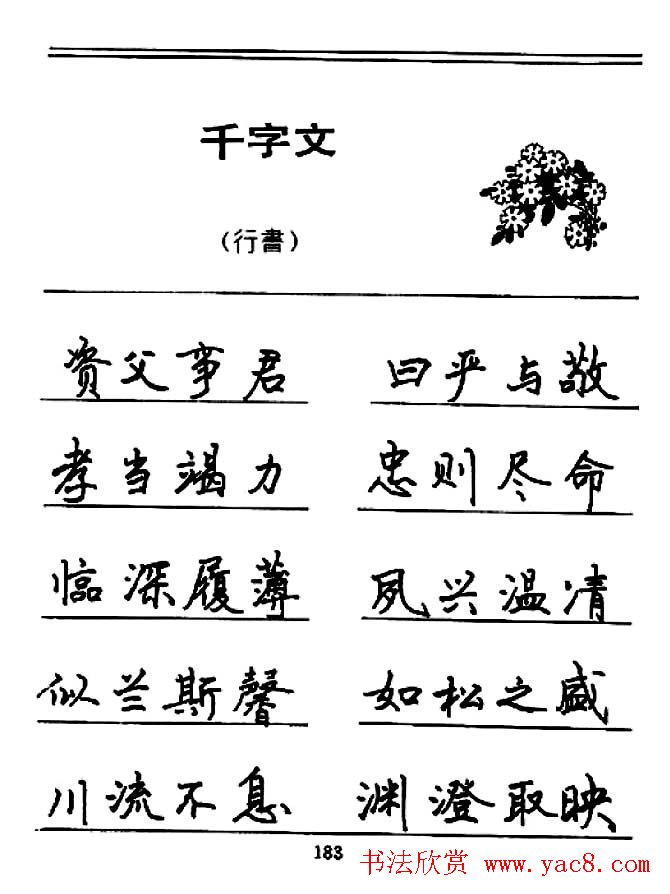 千字文
(行書)
资父事君 曰严与敬
孝当竭力 忠则尽命
临深履薄 夙兴温凊
似兰斯馨 如松之盛
川流不息 渊澄取映
183
书法欣赏 www.yac8.com